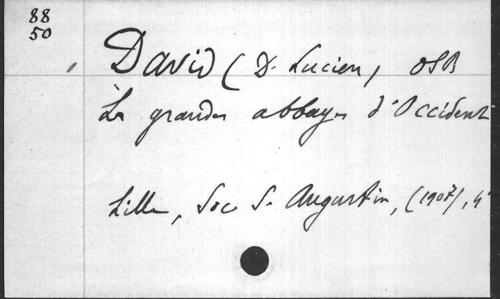 88
50
David (D. Lucien) OSB
Les grandes abbayes d'Occident
Lille, Soc S. Augustin, (1907), 4°